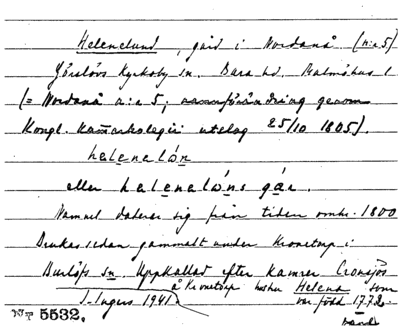 Helenelund, gård i Nordanå (n:o 5)
Görslövs Kyrkoby sn. Bara hd. Malmöhus l.
(= Nordanå n:o 5; namnförändring genom
Kongl. Kamarkolagii utslag 25/10 1805).
halenaló̱n
eller halenaló̱ns gá̱r.
Namnet daterar sig från tiden omkr. 1800
Brukas sedan gammalt under Kronetorp i
Burlöfs sn. Uppkallad efter kamrer Cronsjös
å Kronetorp hustru Helena som
J. Ingers 1941. var född 1772.
Nr 5532.